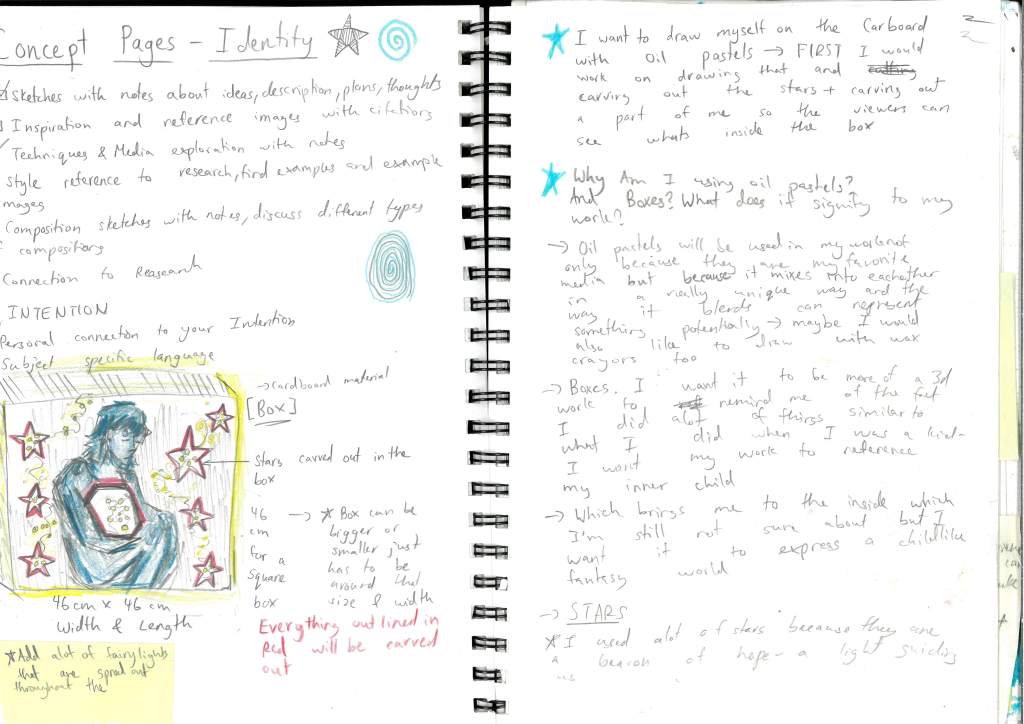 Concept Pages - Identity
Sketches with notes about ideas, description, plans, thoughts
Inspiration and reference images with citations
Techniques & Media exploration with notes
Style reference to research, find examples and example
images
Composition sketches with notes, discuss different types
of compositions
Connection to Reasearch
INTENTION
Personal connection to your Intention
Subject specific language
→ Cardboard material
[Box]
Stars carved out in the
box
46
cm
for a
square
box
→ * Box can be
bigger or
smaller just
has to be
around that
size & width
46 cm x 46 cm
Width & Length
Everything outlined in
Red will be carved
out
*Add alot of fairylights
that are spread out
throughout the
I want to draw myself on the Carboard
with Oil pastels → FIRST I would
work on drawing that and
carving out the stars + carving out
a part of me so the viewers can
see whats inside the box
Why Am I using oil pastels?
And Boxes? What does it signify to my
work?
→ Oil pastels will be used in my work not
only because they are my favorite
media but because it mixes into eachother
in a really unique way and the
way it blends can represent
something potentially → maybe I would
also like to draw with wax
crayons too
→ Boxes. I want it to be more of a 3d
work to remind me of the fact
I did alot of things similar to
what I did when I was a kid-
I want my work to reference
my inner child
→ Which brings me to the inside which
I'm still not sure about but I
want it to express a childlike
fantasy world
→ STARS
* I used alot of stars because they are
a beacon of hope - a light guiding
us